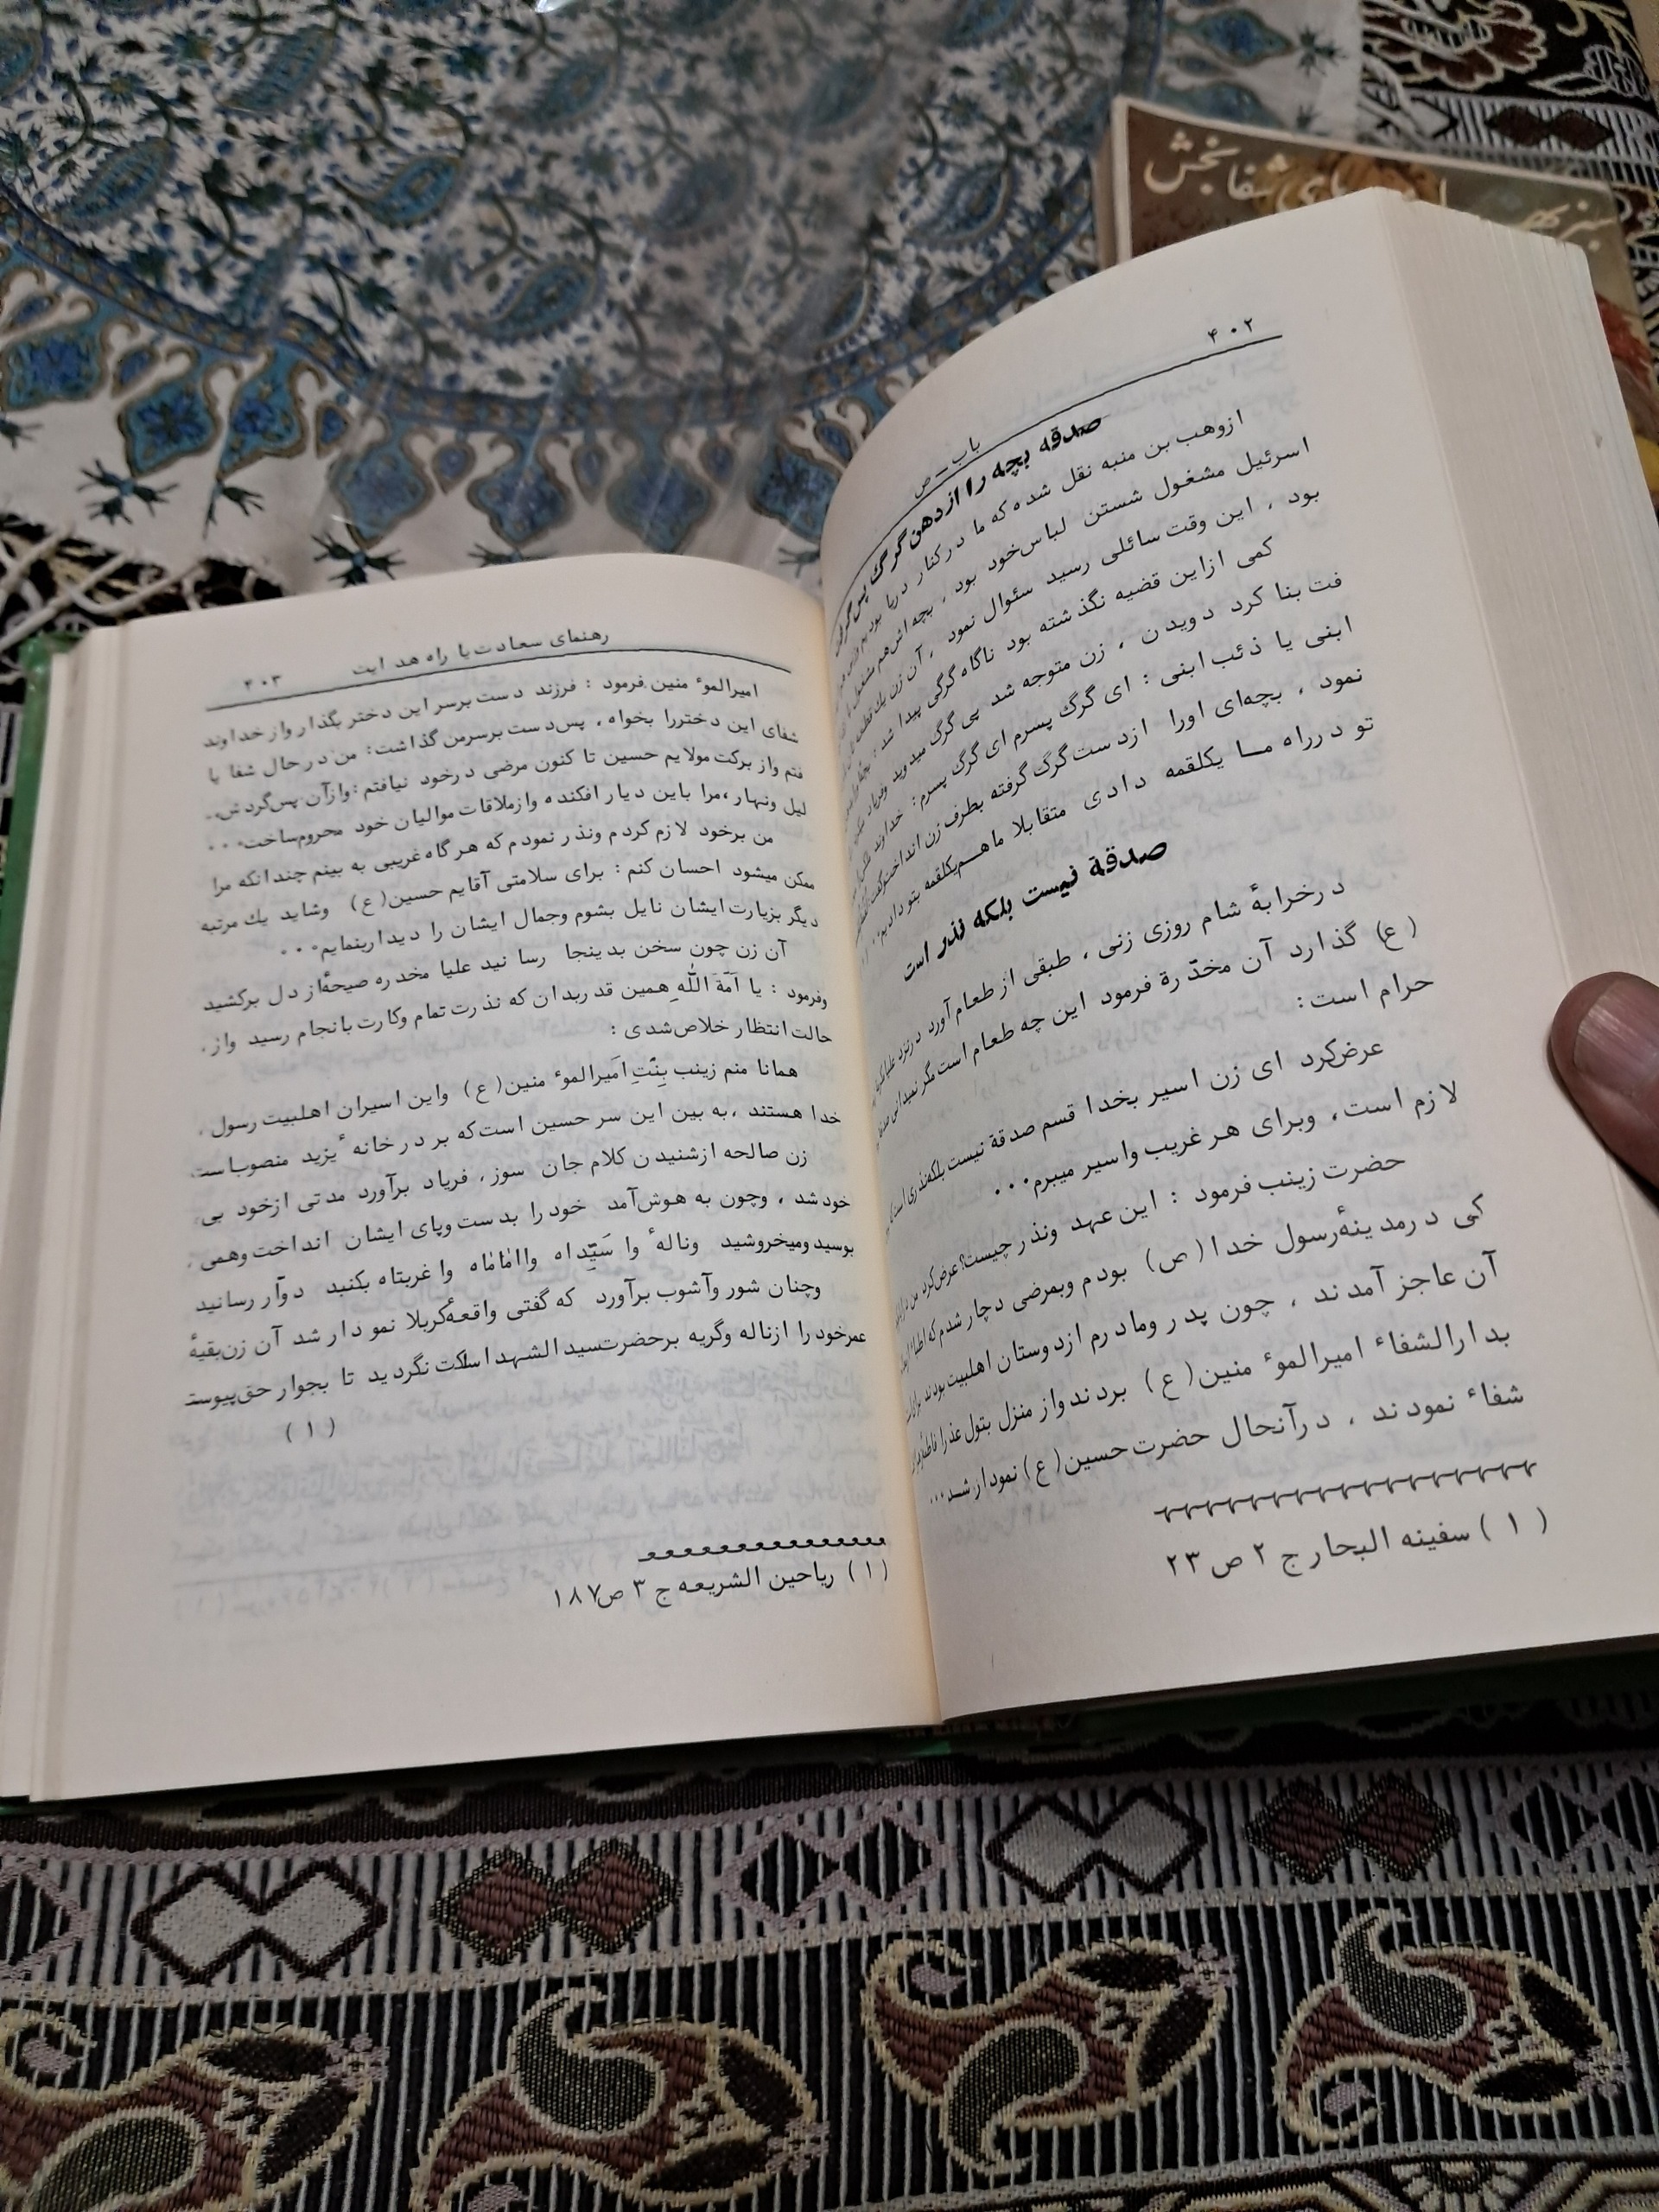 سبز
شفابخش
۴۰۲
باب - ص
صدقه بچه را از دهن گرگ پس گرفت
ازوهب بن منبه نقل شده که ما درکنار دریا بودیم
اسرئیل مشغول شستن لباس‌خود بود ، بچه اش‌هم مشغول
بود ، این وقت سائلی رسید سئوال نمود ، آن زن یك
کمی ازاین قضیه نگذشته بود ناگاه گرگی پیدا شد ،
فت بنا کرد دویدن ، زن متوجه شد پی گرگ میدوید
ابنی یا ذئب ابنی : ای گرگ پسرم ای گرگ پسرم : خداوند
نمود ، بچه‌ای اورا ازدست گرگ گرفته بطرف زن انداخت
تو درراه مـا یکلقمه دادی متقابلا ماهـم یکلقمه بتو دادیم
صدقة نیست بلکه نذر است
درخرابهٔ شام روزی زنی ، طبقی ازطعام آورد درنزد
(ع) گذارد آن مخدّرة فرمود این چه طعام است مگر نمیدانی
حرام است :
عرض‌کرد ای زن اسیر بخدا قسم صدقة نیست بلکه‌نذری
لازم است، وبرای هر غریب واسیر میبرم...
حضرت زینب فرمود : این عهد ونذر چیست؟ عرض‌کرد من
کی درمدینهٔ‌رسول خدا (ص) بودم وبمرضی دچار شدم که اطباء
آن عاجز آمدند ، چون پدر ومادرم ازدوستان اهلبیت بودند
بدارالشفاء امیرالموٴ منین (ع) بردند واز منزل بتول عذرا
شفاء نمودند ، درآنحال حضرت حسین (ع) نمودار شـد...
( ۱ ) سفینه البحار ج ۲ ص ۲۳
رهنمای سعادت یا راه هدایت ۴۰۳
امیرالموٴ منین فرمود : فرزند دست برسر این دختر بگذار واز خداوند
شفای این دخترا بخواه ، پس‌دست برسرمن گذاشت: من درحال شفا یا
فتم واز برکت مولایم حسین تا کنون مرضی درخود نیافتم : وازآن پس‌گردش
لیل ونهار ،مرا باین دیار افکنده وازملاقات موالیان خود محروم‌ساخت...
من برخود لازم کردم ونذر نمودم که هرگاه غریبی به بینم چندانکه مرا
ممکن میشود احسان کنم : برای سلامتی آقایم حسین(ع) وشاید یك مرتبه
دیگر بزیارت ایشان نایل بشوم وجمال ایشان را دیدار بنمایم...
آن زن چون سخن بدینجا رسانید علیا مخدره صیحهٔ‌از دل برکشید
وفرمود : یا اَمَّةَ اللّٰهِ همین قدر بدان که نذرت تمام وکارت بانجام رسید واز
حالت انتظار خلاص‌شدی :
همانا منم زینب بِنْتِ اَمیرالموٴ منین(ع) واین اسیران اهلبیت رسول
خدا هستند ،به بین این سر حسین است‌که بر در خانهٴ یزید منصوب‌است
زن صالحه ازشنیدن کلام جان سوز، فریاد برآورد مدتی ازخود بی
خود شد ، وچون به هوش‌آمد خود را بدست وپای ایشان انداخت وهمی
بوسید ومیخروشید ونالهٔ وا سَیِّداه وااِمٰامٰاه وا غربتاه بکنبد دوّار رسانید
وچنان شور وآشوب برآورد که گفتی واقعهٔ‌کربلا نمودار شد آن زن‌بقیهٔ
عمرخود را ازناله وگریه برحضرت‌سیدالشهدا ساکت نگردید تا بجوار حق‌پیوست
( ۱ )
( ۱ ) ریاحین الشریعه ج ۳ ص۱۸۷